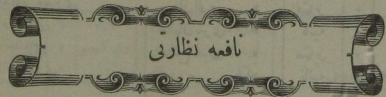 نافعه نظارتی